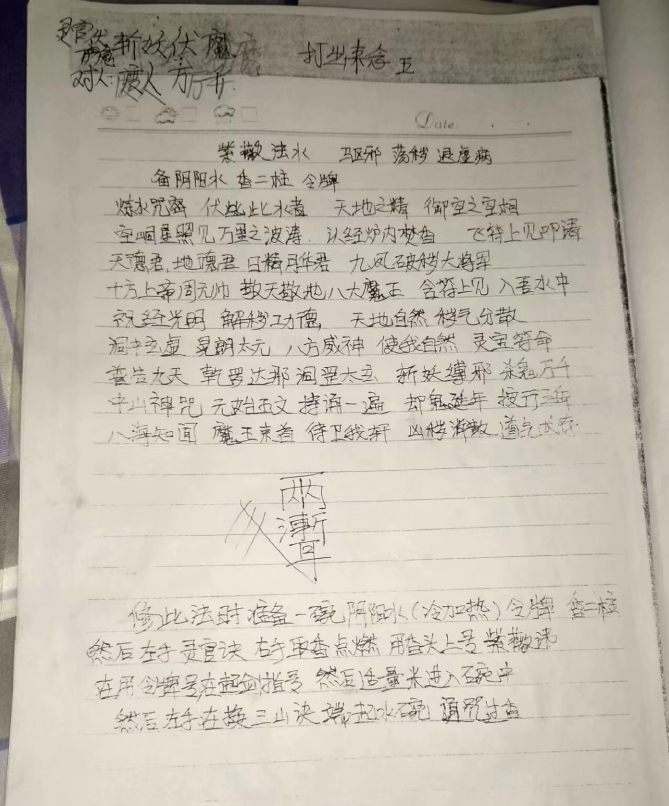 斩妖伏魔
打坐来念
对人 度人 万万千
Date:
紫薇法水 驱邪 荡秽 退虚病
备阴阳水 香二柱 令牌
炼水咒密 伏此此水者 天地之精 御空之空相
空 星照见万里之波涛 认经炉内焚香 飞符上见 清
天德君 地德君 日精月华君 九凤破秽大将军
十方上帝周元帅 敬天敬地八大魔王 含符上见 入吾水中
祝经光明 解秽功德 天地自然 秽气分散
洞中玄虚 晃朗太元 八方威神 使我自然 灵宝符命
普告九天 乾罗达那 洞罡太玄 斩妖缚邪 杀鬼万千
中山神咒 元始玉文 持诵一遍 却鬼延年 按行三年
八海知闻 魔王束首 侍卫我轩 凶秽消散 道气长存
修此法时准备一碗阴阳水(冷加热) 令牌 香二柱
然后左手灵官诀 右手取香点燃 用香头上号紫薇讳
在用令牌号在起剑指号 然后适量米进入碗中
然后左手在换三山诀 端起水碗 诵咒过香